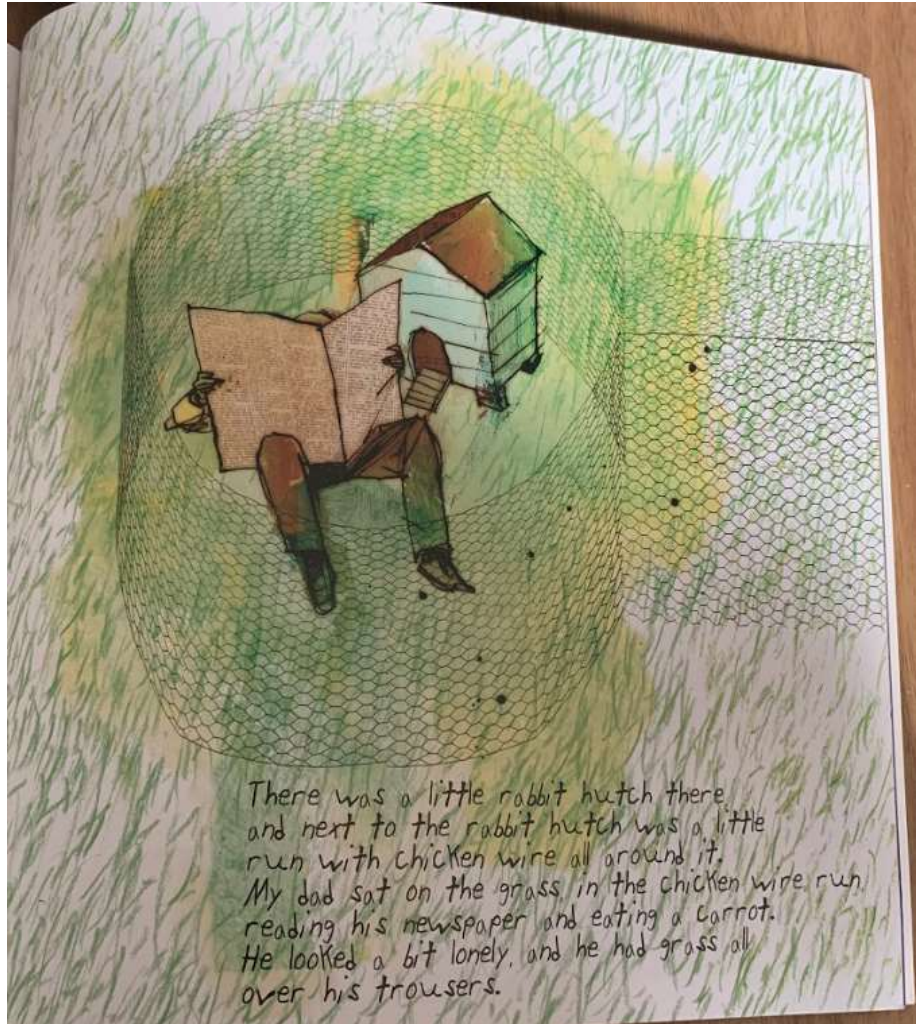 There was a little rabbit hutch there,
and next to the rabbit hutch was a little
run with chicken wire all around it.
My dad sat on the grass, in the chicken wire run,
reading his newspaper and eating a carrot.
He looked a bit lonely, and he had grass all
over his trousers.